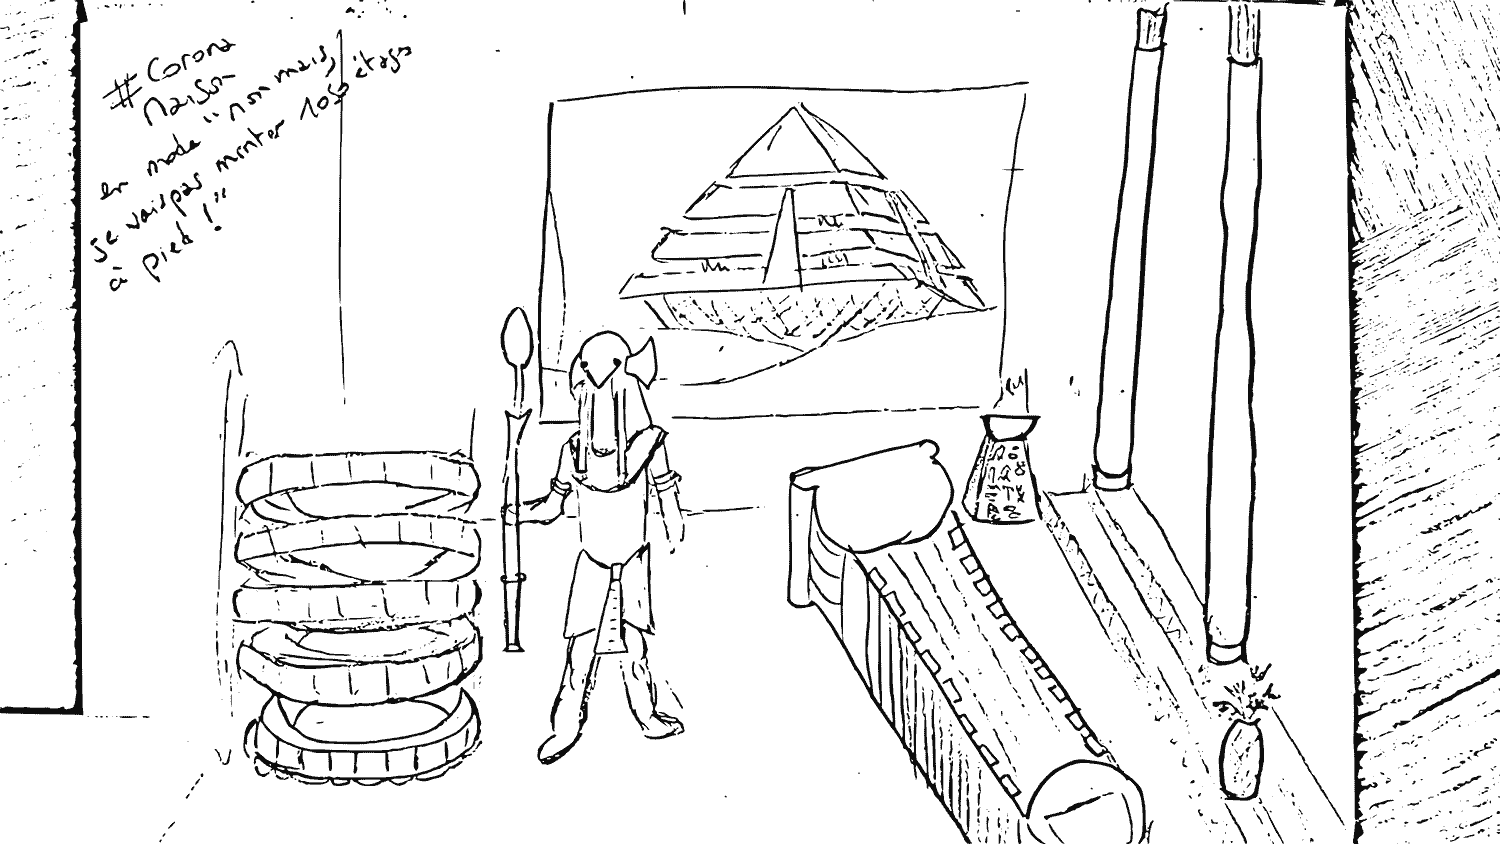 # Corona
Maison
en mode "non mais,
je vais pas monter 1050 étages
à pied !"